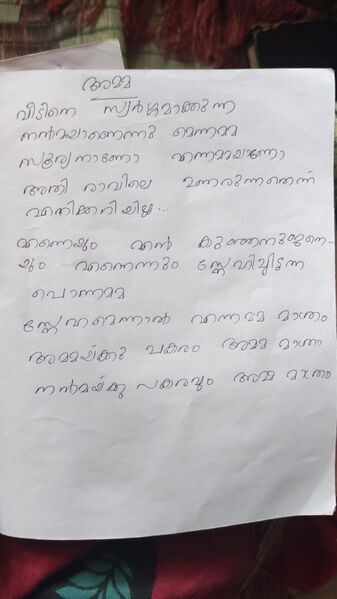 അമ്മ
വീടിനെ സ്വർഗ്ഗമാക്കുന്ന
നൻമയാണെന്നു മെന്നമ്മ
സൂര്യനാണോ എന്നമ്മയാണോ
അതി രാവിലെ ഉണരുന്നതെന്ന്
എനിക്കറിയില്ല...
എന്നെയും എൻ കുഞ്ഞനുജനെ-
യും എന്നെന്നും സ്നേഹിച്ചിടുന്ന
പൊന്നമ്മ
സ്നേഹമെന്നാൽ എന്നമ്മ മാത്രം
അമ്മയ്ക്കു പകരം അമ്മ മാത്രം
നൻമയ്ക്കു പകരവും അമ്മ മാത്രം